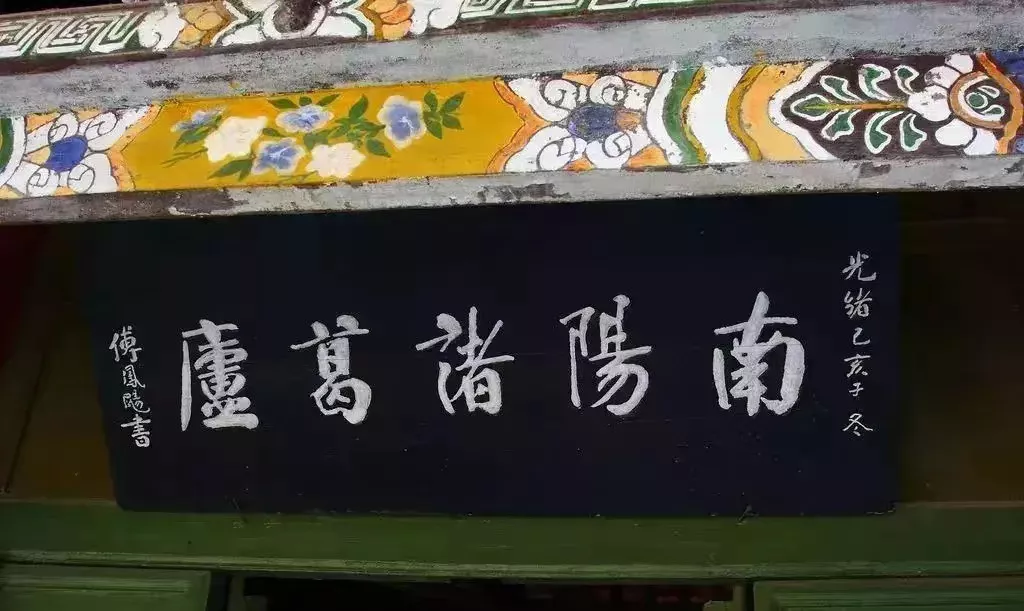 光緒己亥子冬
南陽諸葛廬
傅鳳颺書